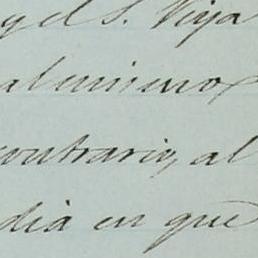 gel S. Viya
al mismo
contrario, al
dia en que